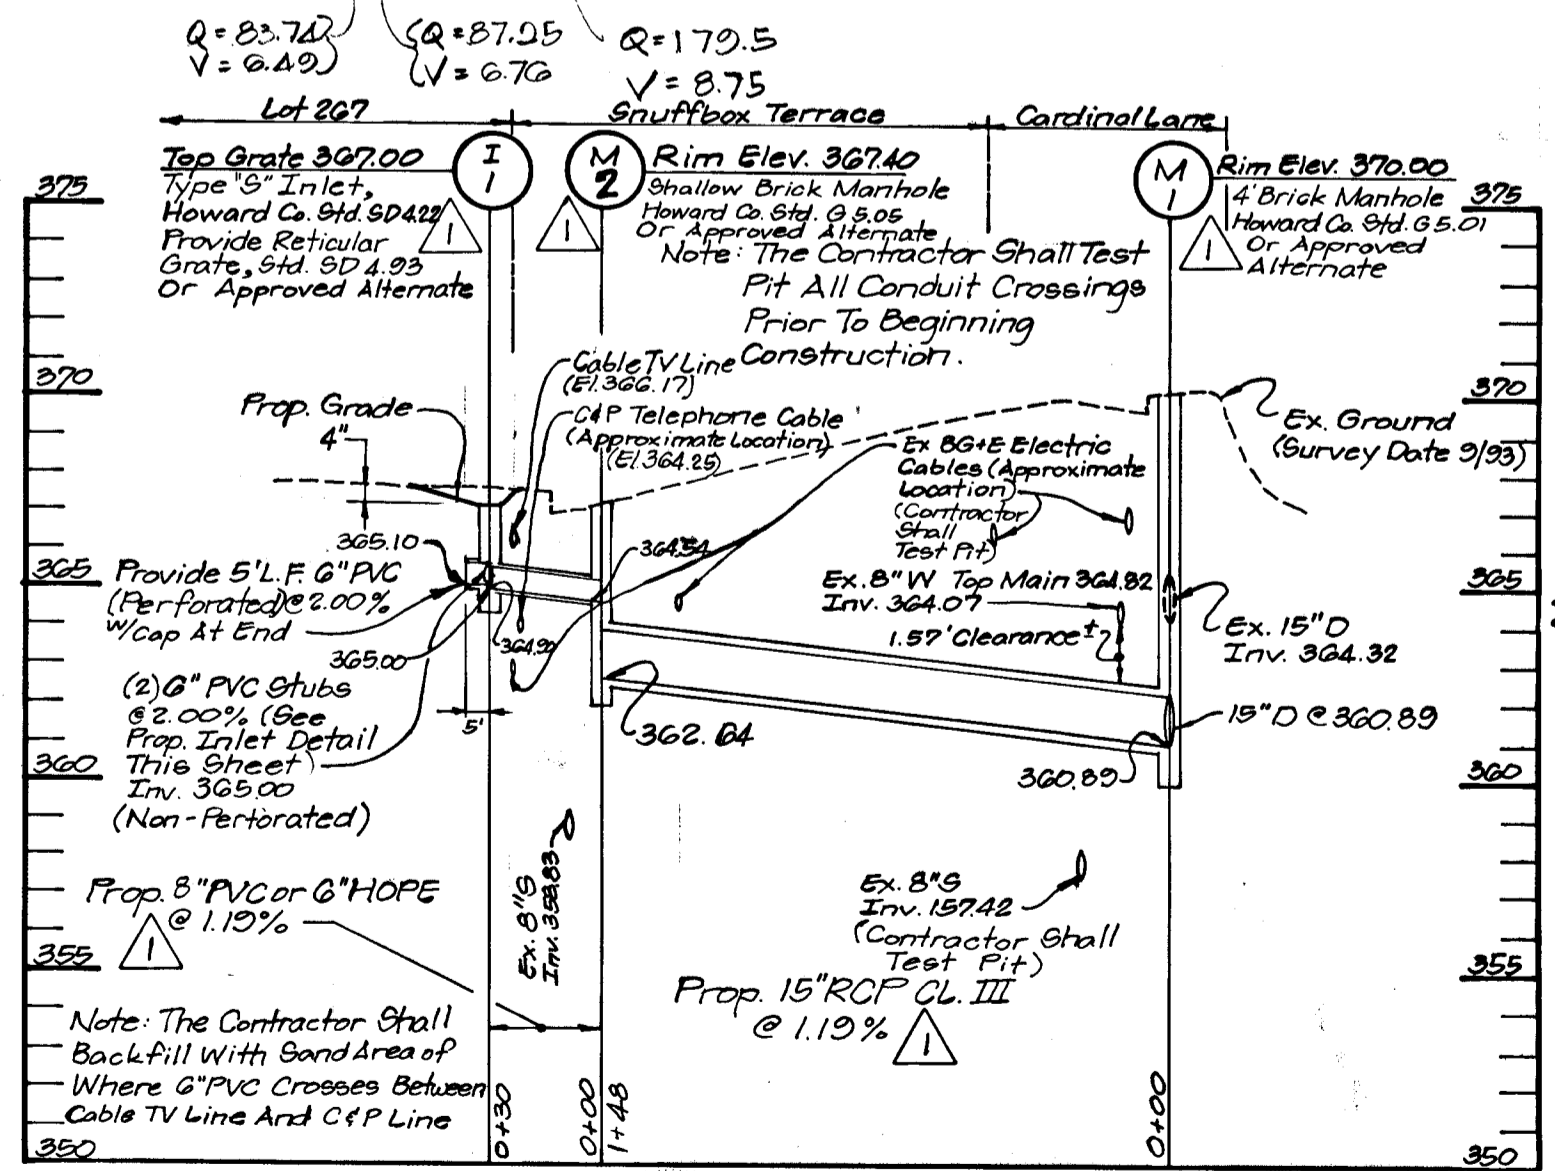 Q=83.74
V=6.49
Q=87.25
V=6.76
Q=179.5
V=8.75
Lot 267
Snuffbox Terrace
Cardinal Lane
I
1
Top Grate 367.00
Type "S" Inlet,
Howard Co. Std. SD4.22
Provide Reticular
Grate, Std. SD4.93
Or Approved Alternate
1
M
2
Rim Elev. 367.40
Shallow Brick Manhole
Howard Co. Std. G 5.05
Or Approved Alternate
1
Note: The Contractor Shall Test
Pit All Conduit Crossings
Prior To Beginning
Construction.
M
1
Rim Elev. 370.00
4' Brick Manhole
Howard Co. Std. G5.01
Or Approved
Alternate
1
375
370
365
360
355
350
375
370
365
360
355
350
Prop. Grade
4"
Cable TV Line
(El. 366.17)
C&P Telephone Cable
(Approximate Location)
(El. 364.25)
Ex BG+E Electric
Cables (Approximate
Location)
(Contractor
Shall
Test Pit)
Ex. Ground
(Survey Date 9/93)
365.10
Provide 5' L.F. 6" PVC
(Perforated) @ 2.00%
W/Cap At End
365.00
364.90
364.54
(2) 6" PVC Stubs
@ 2.00% (See
Prop. Inlet Detail
This Sheet)
Inv. 365.00
(Non-Perforated)
5'
Ex. 8" W Top Main 364.82
Inv. 364.07
1.57' Clearance ±
Ex. 15" D
Inv. 364.32
15" D @ 360.89
362.64
360.89
Prop. 8" PVC or 6" HOPE
@ 1.19%
1
Ex. 8" S
Inv. 358.83
Ex. 8" S
Inv. 157.42
(Contractor Shall
Test Pit)
Prop. 15" RCP CL. III
@ 1.19%
1
Note: The Contractor Shall
Backfill With Sand Area of
Where 6" PVC Crosses Between
Cable TV Line And C&P Line
0+30
0+00
1+48
0+00